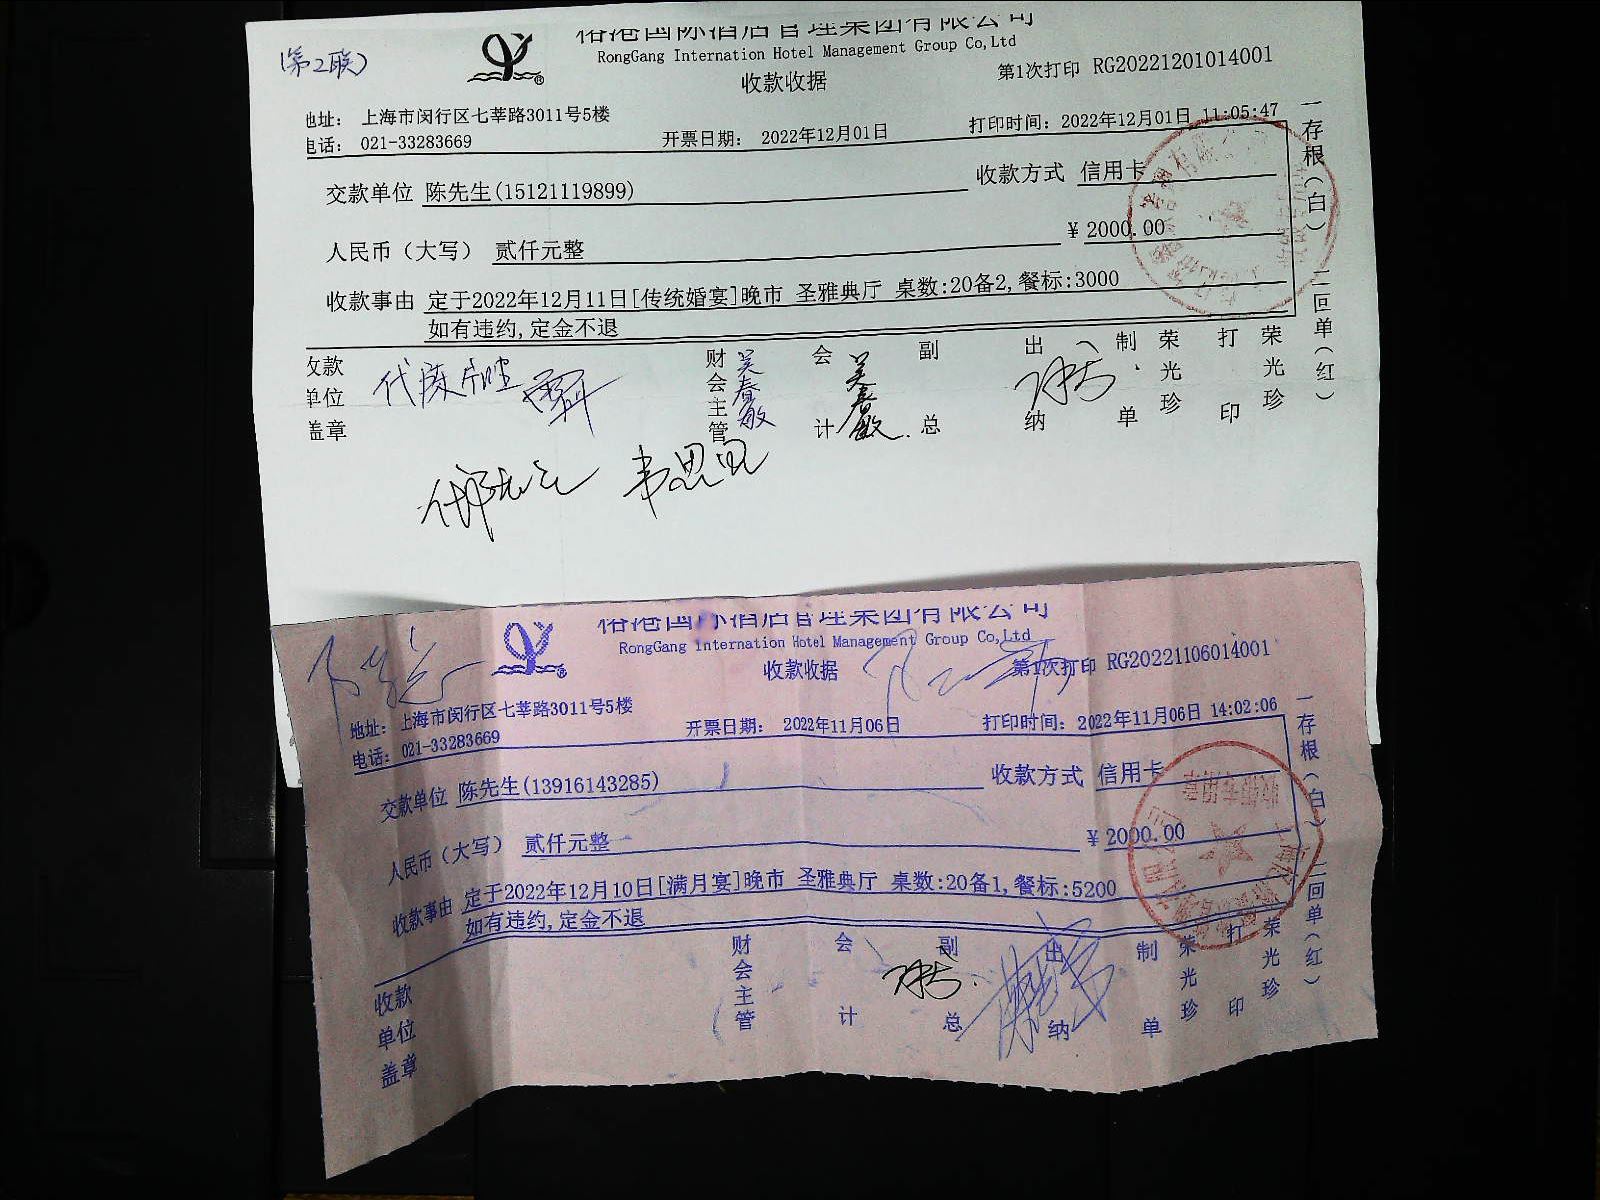 (第2联)
国际酒店管理集团有限公司
RongGang Internation Hotel Management Group Co,Ltd
收款收据
第1次打印 RG20221201014001
地址: 上海市闵行区七莘路3011号5楼
电话: 021-33283669
开票日期: 2022年12月01日
打印时间: 2022年12月01日 11:05:47
交款单位 陈先生(15121119899)
收款方式 信用卡
人民币(大写) 贰仟元整
¥ 2000.00
收款事由 定于2022年12月11日[传统婚宴]晚市 圣雅典厅 桌数:20备2,餐标:3000
如有违约,定金不退
一存根(白) 二回单(红)
收款单位盖章
财会主管 吴春敏
会计 吴春敏
副总
出纳
制单 荣光珍
打印 荣光珍
国际酒店管理集团有限公司
RongGang Internation Hotel Management Group Co,Ltd
收款收据
第1次打印 RG20221106014001
地址: 上海市闵行区七莘路3011号5楼
电话: 021-33283669
开票日期: 2022年11月06日
打印时间: 2022年11月06日 14:02:06
交款单位 陈先生(13916143285)
收款方式 信用卡
人民币(大写) 贰仟元整
¥ 2000.00
收款事由 定于2022年12月10日[满月宴]晚市 圣雅典厅 桌数:20备1,餐标:5200
如有违约,定金不退
一存根(白) 二回单(红)
收款单位盖章
财会主管
会计
副总
出纳
制单 荣光珍
打印 荣光珍